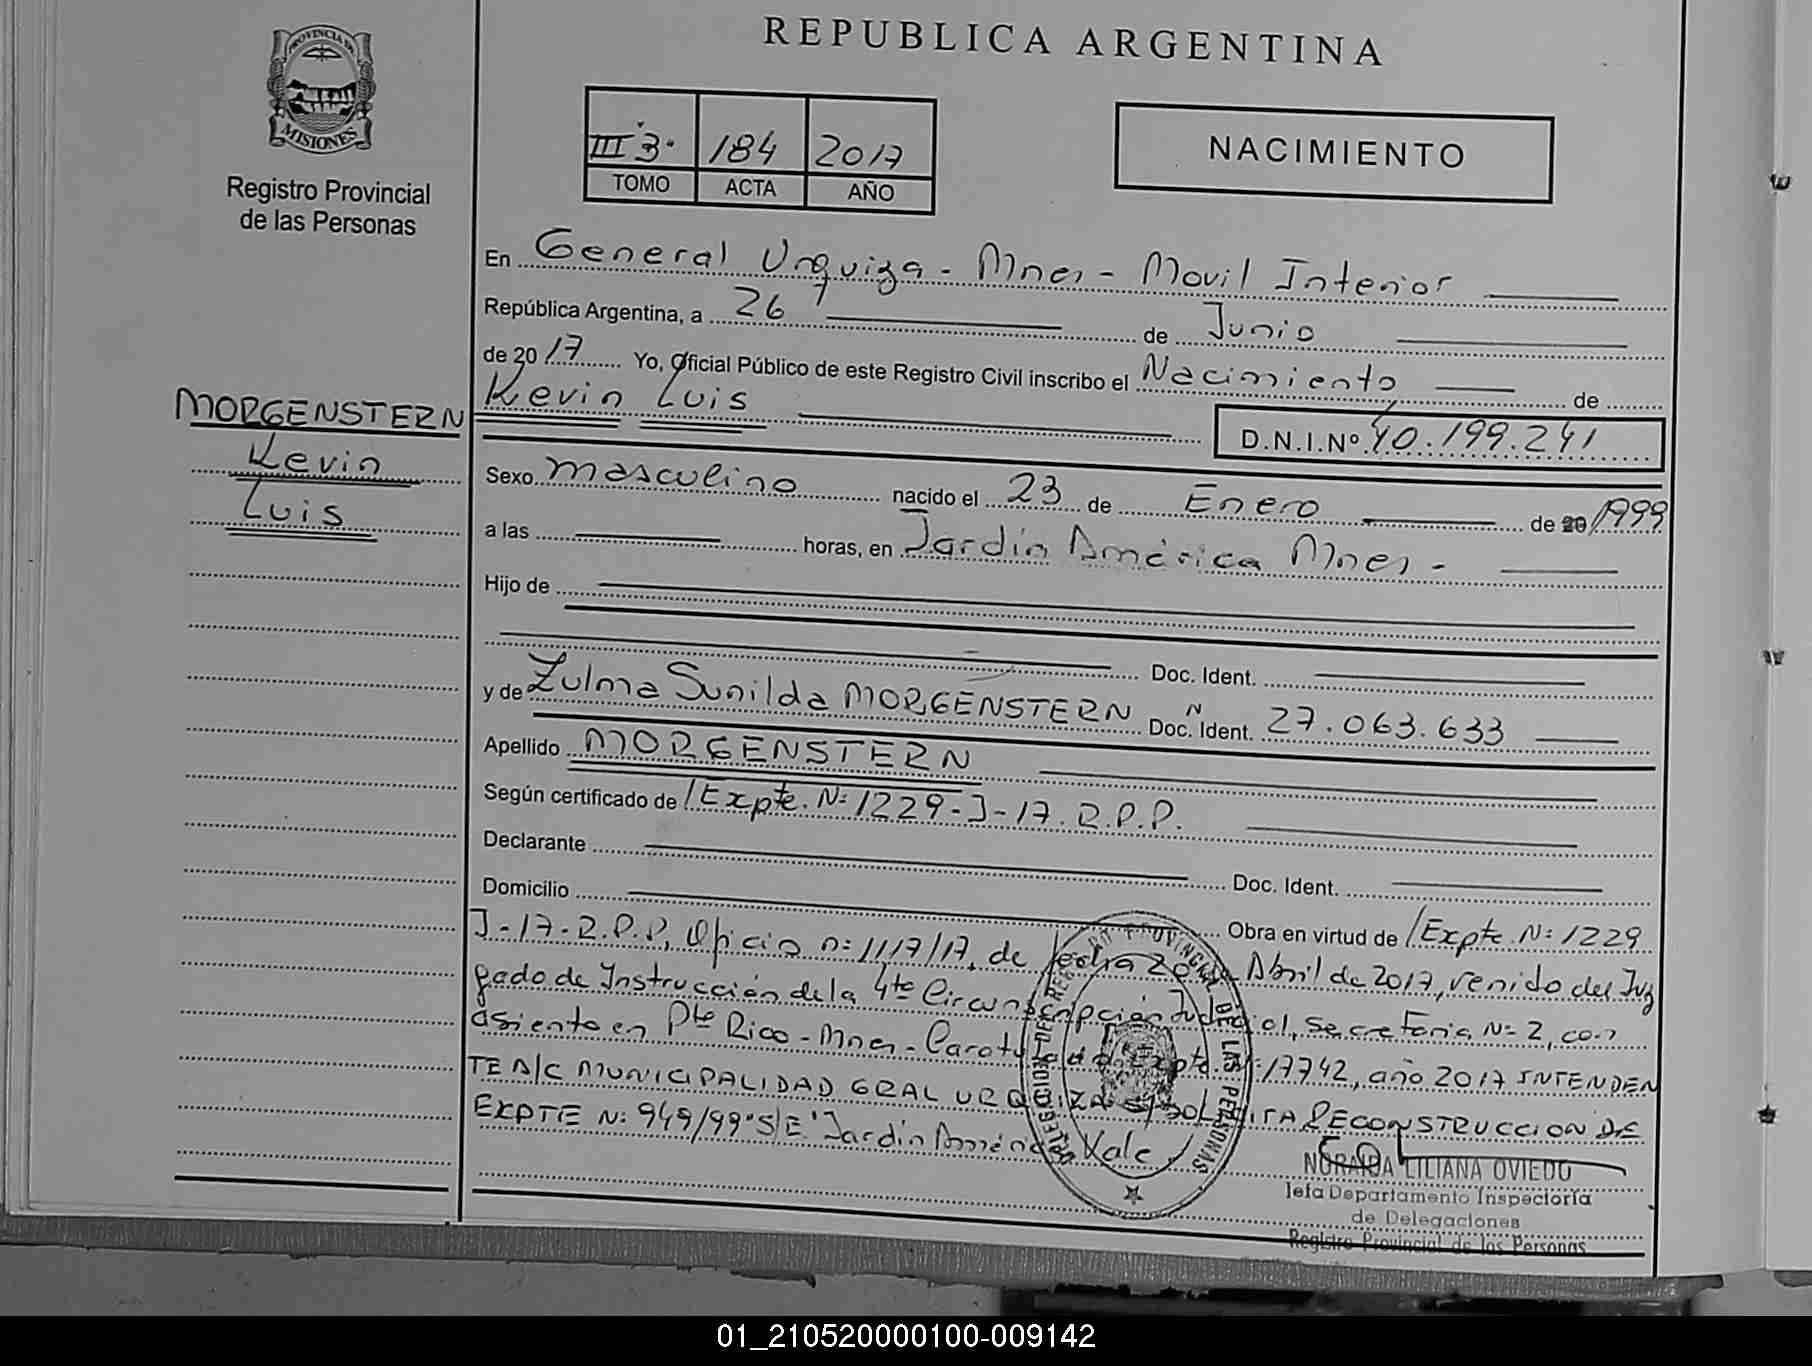 REPUBLICA ARGENTINA
PROVINCIA DE
MISIONES
Registro Provincial
de las Personas
III 3. 184 2017
TOMO ACTA AÑO
NACIMIENTO
En General Urquiza - Mnes - Movil Interior
República Argentina, a 26 de Junio
de 2017 Yo, Oficial Público de este Registro Civil inscribo el Nacimiento de
Kevin Luis D.N.I.Nº 40.199.241
MORGENSTERN
Kevin
Luis
Sexo masculino nacido el 23 de Enero de 20/1999
a las horas, en Jardín América Mnes -
Hijo de
Doc. Ident.
y de Zulma Sunilda MORGENSTERN Doc. Ident. N 27.063.633
Apellido MORGENSTERN
Según certificado de /Expte. N: 1229-J-17. R.P.P.
Declarante Doc. Ident.
Domicilio Obra en virtud de /Expte. N: 1229
J-17-R.P.P, Oficio n: 1117/17, de fecha 20 Abril de 2017, venido del Juz
gado de Instrucción de la 4ta Circunscripción Judicial, Secretaria N: 2, con
asiento en Pto Rico - Mnes - Caratulado Expte. N: 17742, año 2017 INTENDEN
TE A/C MUNICIPALIDAD GRAL URQUIZA S/SOLICITA RECONSTRUCCION DE
EXPTE N: 949/99 S/E Jardín América Vale.
DELEGACION DEL REGISTRO PROVINCIAL DE LAS PERSONAS
LILIANA OVIEDO
Jefa Departamento Inspectoría
de Delegaciones
Registro Provincial de las Personas
01_210520000100-009142